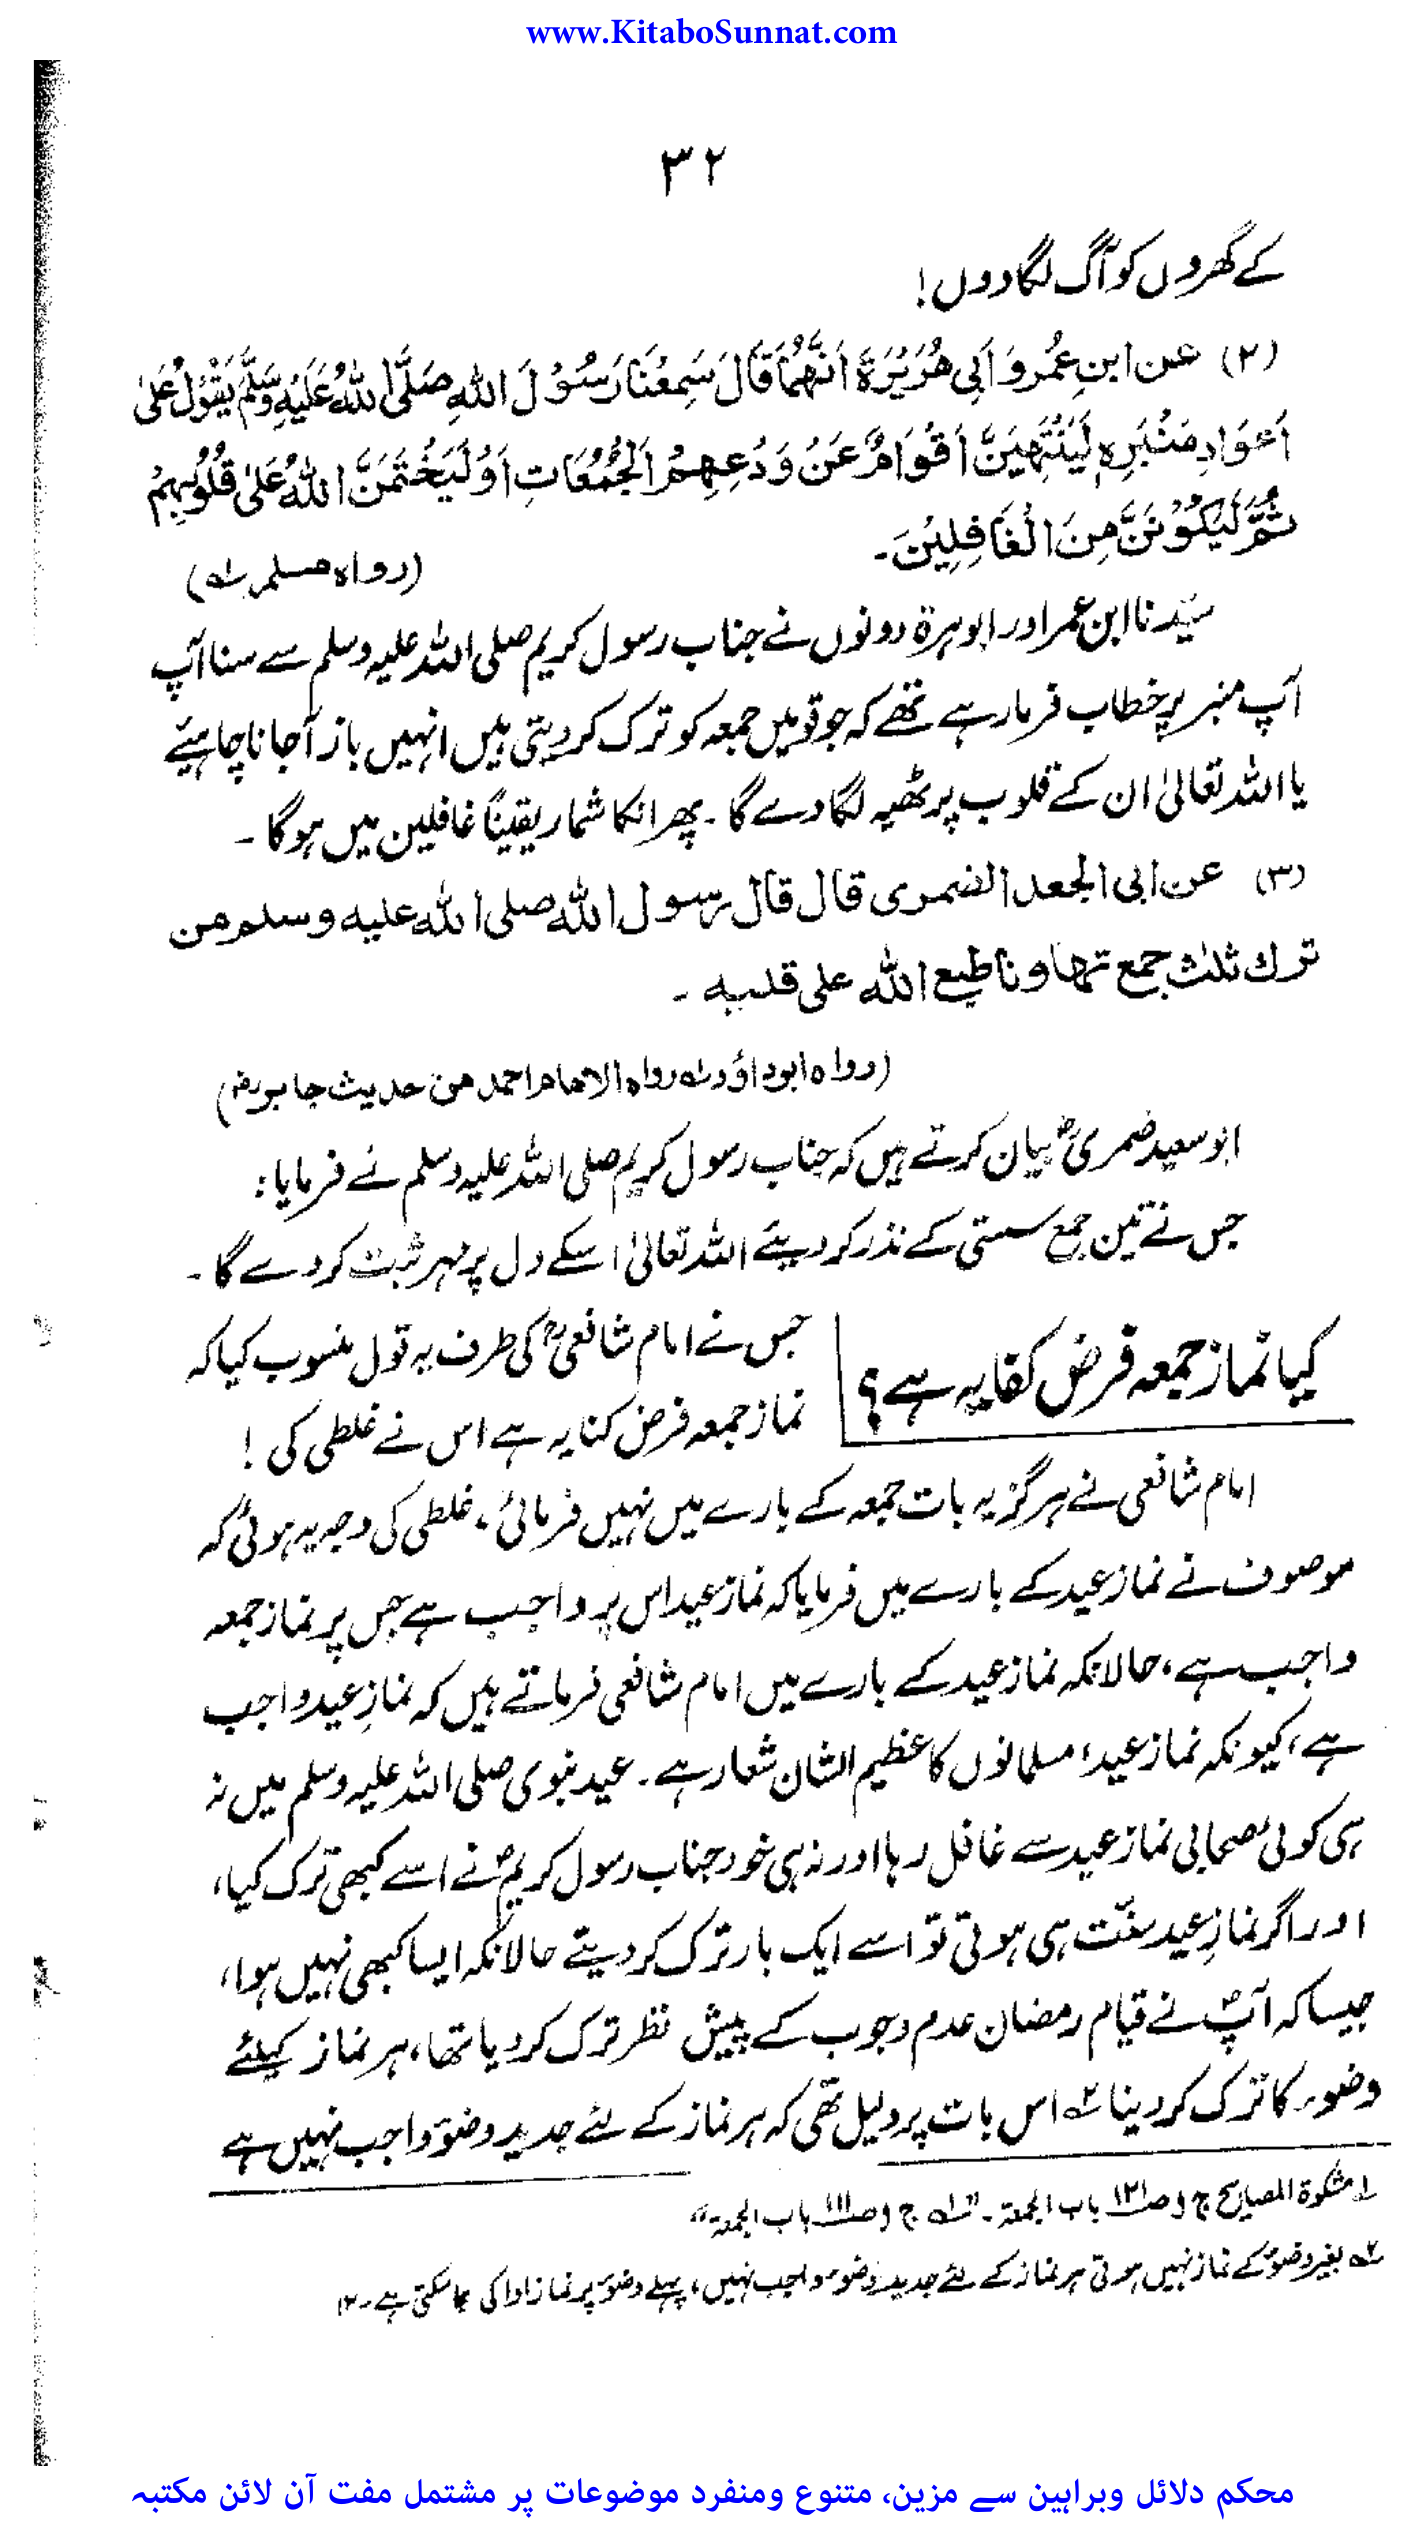 www.KitaboSunnat.com
۳۲
کے گھروں کو آگ لگا دوں!
(۲) عن ابنِ عُمر وَ اَبِی هُرَیْرَةَ اَنَّهُمَا قَالَ سَمِعْنَا رَسُوْلَ اللهِ صَلَّى اللهُ عَلَيْهِ وَسَلَّمَ يَقُوْلُ عَلىٰ
اَعْوَادِ مَنْبَرِهٖ لَيَنْتَهِيَنَّ اَقْوَامٌ عَنْ وَدْعِهِمُ الْجُمُعَاتِ اَوْ لَيَخْتَمَنَّ اللهُ عَلىٰ قُلُوْبِهِمْ
ثُمَّ لَيَكُوْنَنَّ مِنَ الْغَافِلِيْنَ۔
(رواه مسلم ؎۱)
سیّدنا ابن عمر اور ابوہرۃ دونوں نے جناب رسول کریم صلی اللہ علیہ وسلم سے سنا آپ
آپ منبر پر خطاب فرما رہے تھے کہ جو قومیں جمعہ کو ترک کر دیتی ہیں انہیں باز آجانا چاہیئے
یا اللہ تعالیٰ ان کے قلوب پر ٹھپہ لگا دے گا۔ پھر انکا شمار یقیناً غافلین میں ہوگا ۔
(۳) عن ابی الجعد الضمری قال قال رسول الله صلى الله عليه وسلم من
ترك ثلث جمع تهاونا طبع الله على قلبه ۔
(رواه ابوداؤد ؎۱ رواه الامام احمد من حديث جابرؓ)
ابو سعید ضمریؓ بیان کرتے ہیں کہ جناب رسول کریم صلی اللہ علیہ وسلم نے فرمایا :
جس نے تین جمع سستی کے نذر کر دیئے اللہ تعالیٰ اسکے دل پر مہر ثبت کر دے گا ۔
کیا نماز جمعہ فرض کفایہ ہے؟
جس نے امام شافعیؒ کی طرف یہ قول منسوب کیا کہ
نماز جمعہ فرض کنایہ ہے اس نے غلطی کی !
امام شافعی نے ہرگز یہ بات جمعہ کے بارے میں نہیں فرمائی ، غلطی کی وجہ یہ ہوئی کہ
موصوف نے نماز عید کے بارے میں فرمایا کہ نماز عید اس پر واجب ہے جس پر نماز جمعہ
واجب ہے ، حالانکہ نماز عید کے بارے میں امام شافعی فرماتے ہیں کہ نمازِ عید واجب
ہے ، کیونکہ نماز عید ، مسلمانوں کا عظیم الشان شعار ہے ۔ عید نبوی صلی اللہ علیہ وسلم میں نہ
ہی کوئی صحابی نماز عید سے غافل رہا اور نہ ہی خود جناب رسول کریمؐ نے اسے کبھی ترک کیا ،
اور اگر نمازِ عید سنّت ہی ہوتی تو اسے ایک بار ترک کر دیتے حالانکہ ایسا کبھی نہیں ہوا ،
جیسا کہ آپؐ نے قیام رمضان عدم وجوب کے پیش نظر ترک کر دیا تھا ، ہر نماز کیلئے
وضوء کا ترک کر دینا ؎۲ اس بات پر دلیل تھی کہ ہر نماز کے لئے جدید وضوٴ واجب نہیں ہے
؎۱ مشکوة المصابیح ج ۱ ص۱۲۱ باب الجمعۃ ۔ " ؎۱ ج ۱ ص۱۱۱ باب الجمعۃ "
؎۲ بغیر وضوٴ کے نماز نہیں ہوتی ہر نماز کے لئے جدید وضوٴ واجب نہیں ، پہلے وضوٴ پر نماز ادا کی جا سکتی ہے ۔ ۱۲
محکم دلائل وبراہین سے مزین، متنوع ومنفرد موضوعات پر مشتمل مفت آن لائن مکتبہ